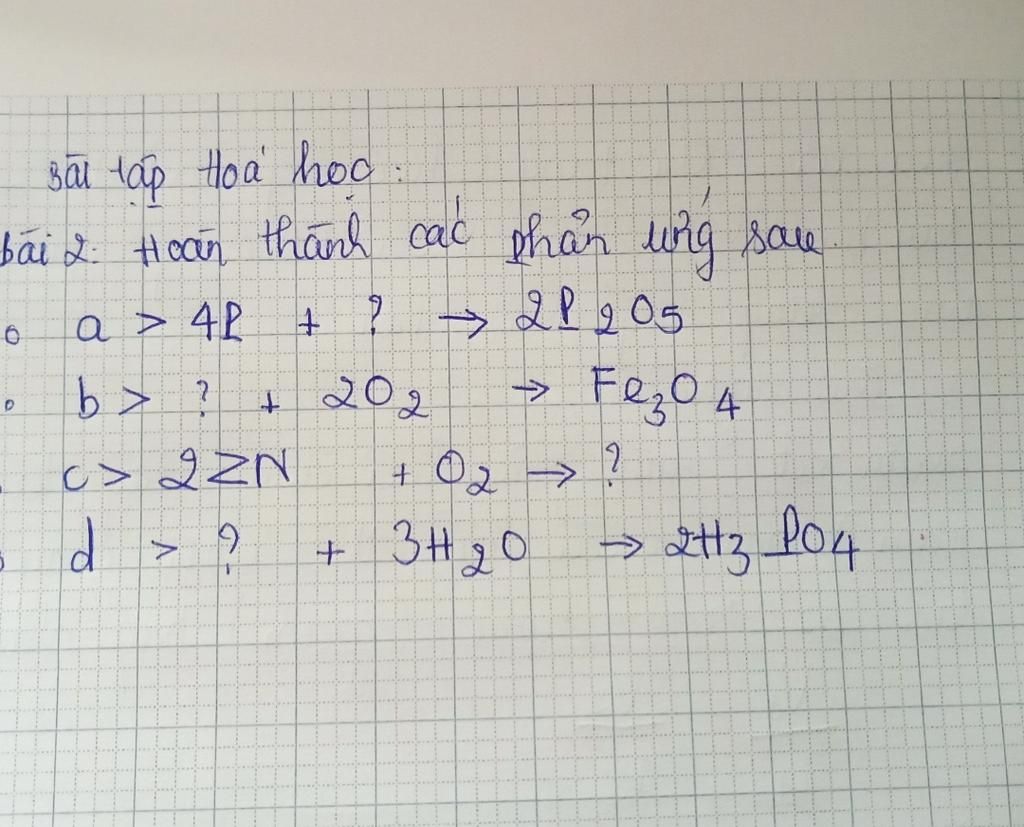 Bài tập Hoá học:
bài 2: Hoàn thành các phản ứng sau
a > 4P + ? → 2P2O5
b > ? + 2O2 → Fe3O4
c > 2ZN + O2 → ?
d > ? + 3H2O → 2H3PO4